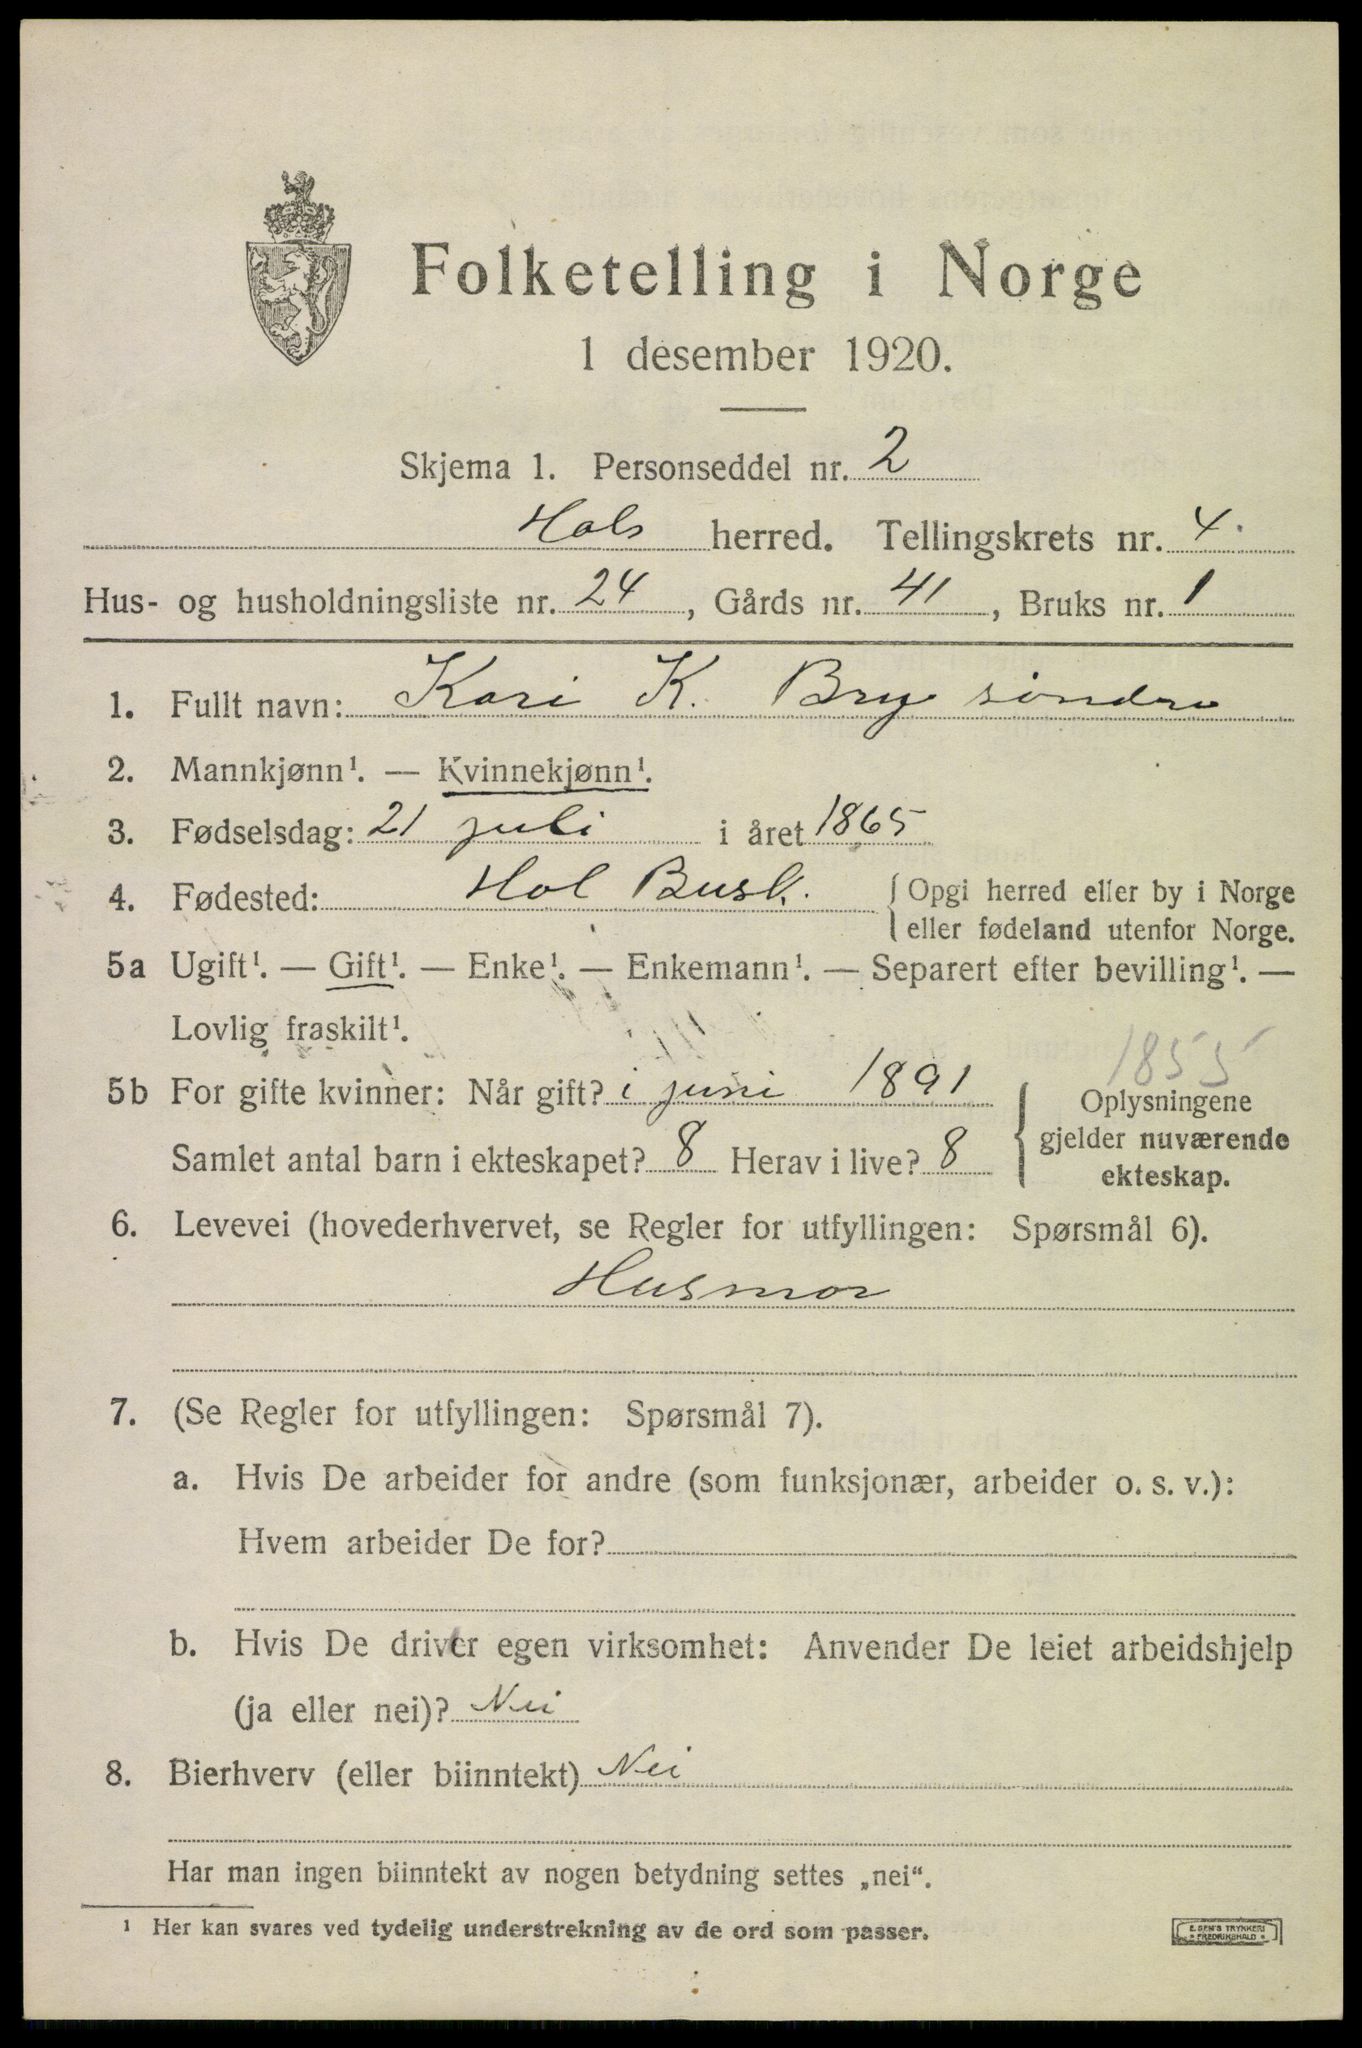 Folketelling i Norge
1 desember 1920.
Skjema 1. Personseddel nr. 2
Hols herred. Tellingskrets nr. 4.
Hus- og husholdningsliste nr. 24, Gårds nr. 41, Bruks nr. 1
1. Fullt navn: Kari K. Bry søndre
2. Mannkjønn¹. — Kvinnekjønn¹.
3. Fødselsdag: 21 juli i året 1865
4. Fødested: Hol Busk. { Opgi herred eller by i Norge
eller fødeland utenfor Norge.
5a Ugift¹. — Gift¹. — Enke¹. — Enkemann¹. — Separert efter bevilling¹. —
Lovlig fraskilt¹.
1855
5b For gifte kvinner: Når gift? i juni 1891 { Oplysningene
gjelder nuværende
Samlet antal barn i ekteskapet? 8 Herav i live? 8
ekteskap.
6. Levevei (hovederhvervet, se Regler for utfyllingen: Spørsmål 6).
Husmor
7. (Se Regler for utfyllingen: Spørsmål 7).
a. Hvis De arbeider for andre (som funksjonær, arbeider o. s. v.):
Hvem arbeider De for?
b. Hvis De driver egen virksomhet: Anvender De leiet arbeidshjelp
(ja eller nei)? Nei
8. Bierhverv (eller biinntekt) Nei
Har man ingen biinntekt av nogen betydning settes „nei“.
¹ Her kan svares ved tydelig understrekning av de ord som passer.
E. SEM'S TRYKKERI
* FREDRIKSHALD *